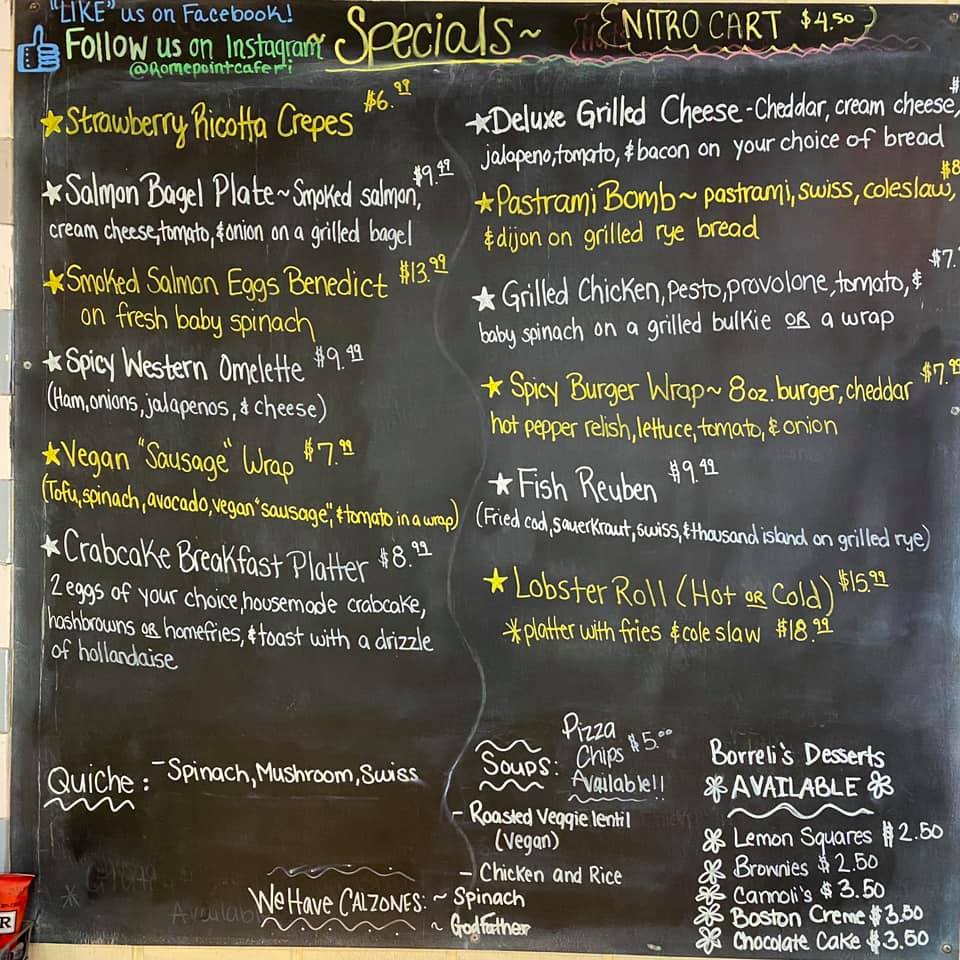 "LIKE" us on Facebook!
Follow us on Instagram
@Romepointcaferi
Specials~
NITRO CART $4.50
★Strawberry Ricotta Crepes $6.99
★Salmon Bagel Plate~Smoked salmon, $9.49
cream cheese,tomato,&onion on a grilled bagel
★Smoked Salmon Eggs Benedict $13.99
on fresh baby spinach
★Spicy Western Omelette $9.49
(Ham,onions,jalapenos,& cheese)
★Vegan "Sausage" Wrap $7.99
(Tofu,spinach,avocado,vegan"sausage",&tomato in a wrap)
★Crabcake Breakfast Platter $8.99
2 eggs of your choice,housemade crabcake,
hashbrowns OR homefries,&toast with a drizzle
of hollandaise
Quiche: -Spinach,Mushroom,Swiss
★Deluxe Grilled Cheese-Cheddar, cream cheese, $
jalapeno,tomato,&bacon on your choice of bread
★Pastrami Bomb~pastrami,swiss,coleslaw, $8
&dijon on grilled rye bread
★Grilled Chicken,pesto,provolone,tomato,& $7.
baby spinach on a grilled bulkie OR a wrap
★Spicy Burger Wrap~ 8oz. burger,cheddar $7.99
hot pepper relish,lettuce,tomato,&onion
★Fish Reuben $9.49
(Fried cod,sauerkraut,swiss,&thousand island on grilled rye)
★Lobster Roll (Hot OR Cold) $15.99
*platter with fries &cole slaw $18.99
Pizza
Chips $5.00
Available!!
Soups:
- Roasted Veggie lentil
(Vegan)
- Chicken and Rice
We Have Calzones: ~ Spinach
~ Godfather
Available
Borreli's Desserts
*AVAILABLE*
Lemon Squares $2.50
Brownies $2.50
Cannoli's $3.50
Boston Creme $3.50
Chocolate Cake $3.50
R